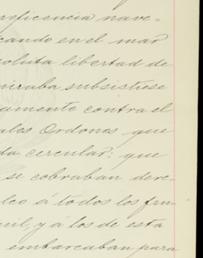 nificencia nave-
cando en el mar
soluta libertad de
miraba subsistiese
amente contra el
ales Ordenes que
da circular: que
se cobraban dere-
dco á todos los fru-
uil, y á los de esta
embarcaban para